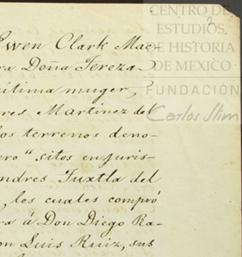 CENTRO DE
ESTUDIOS
DE HISTORIA
DE MEXICO
FUNDACIÓN
Carlos Slim
Ewen Clark Mac-
ra Doña Tereza
itima muger,
res Martinez del
los terrenos deno-
ero" sitos en juris-
ndres Tuxtla del
, los cuales compró
ra á Don Diego Ra-
on Luis Ruiz, sus